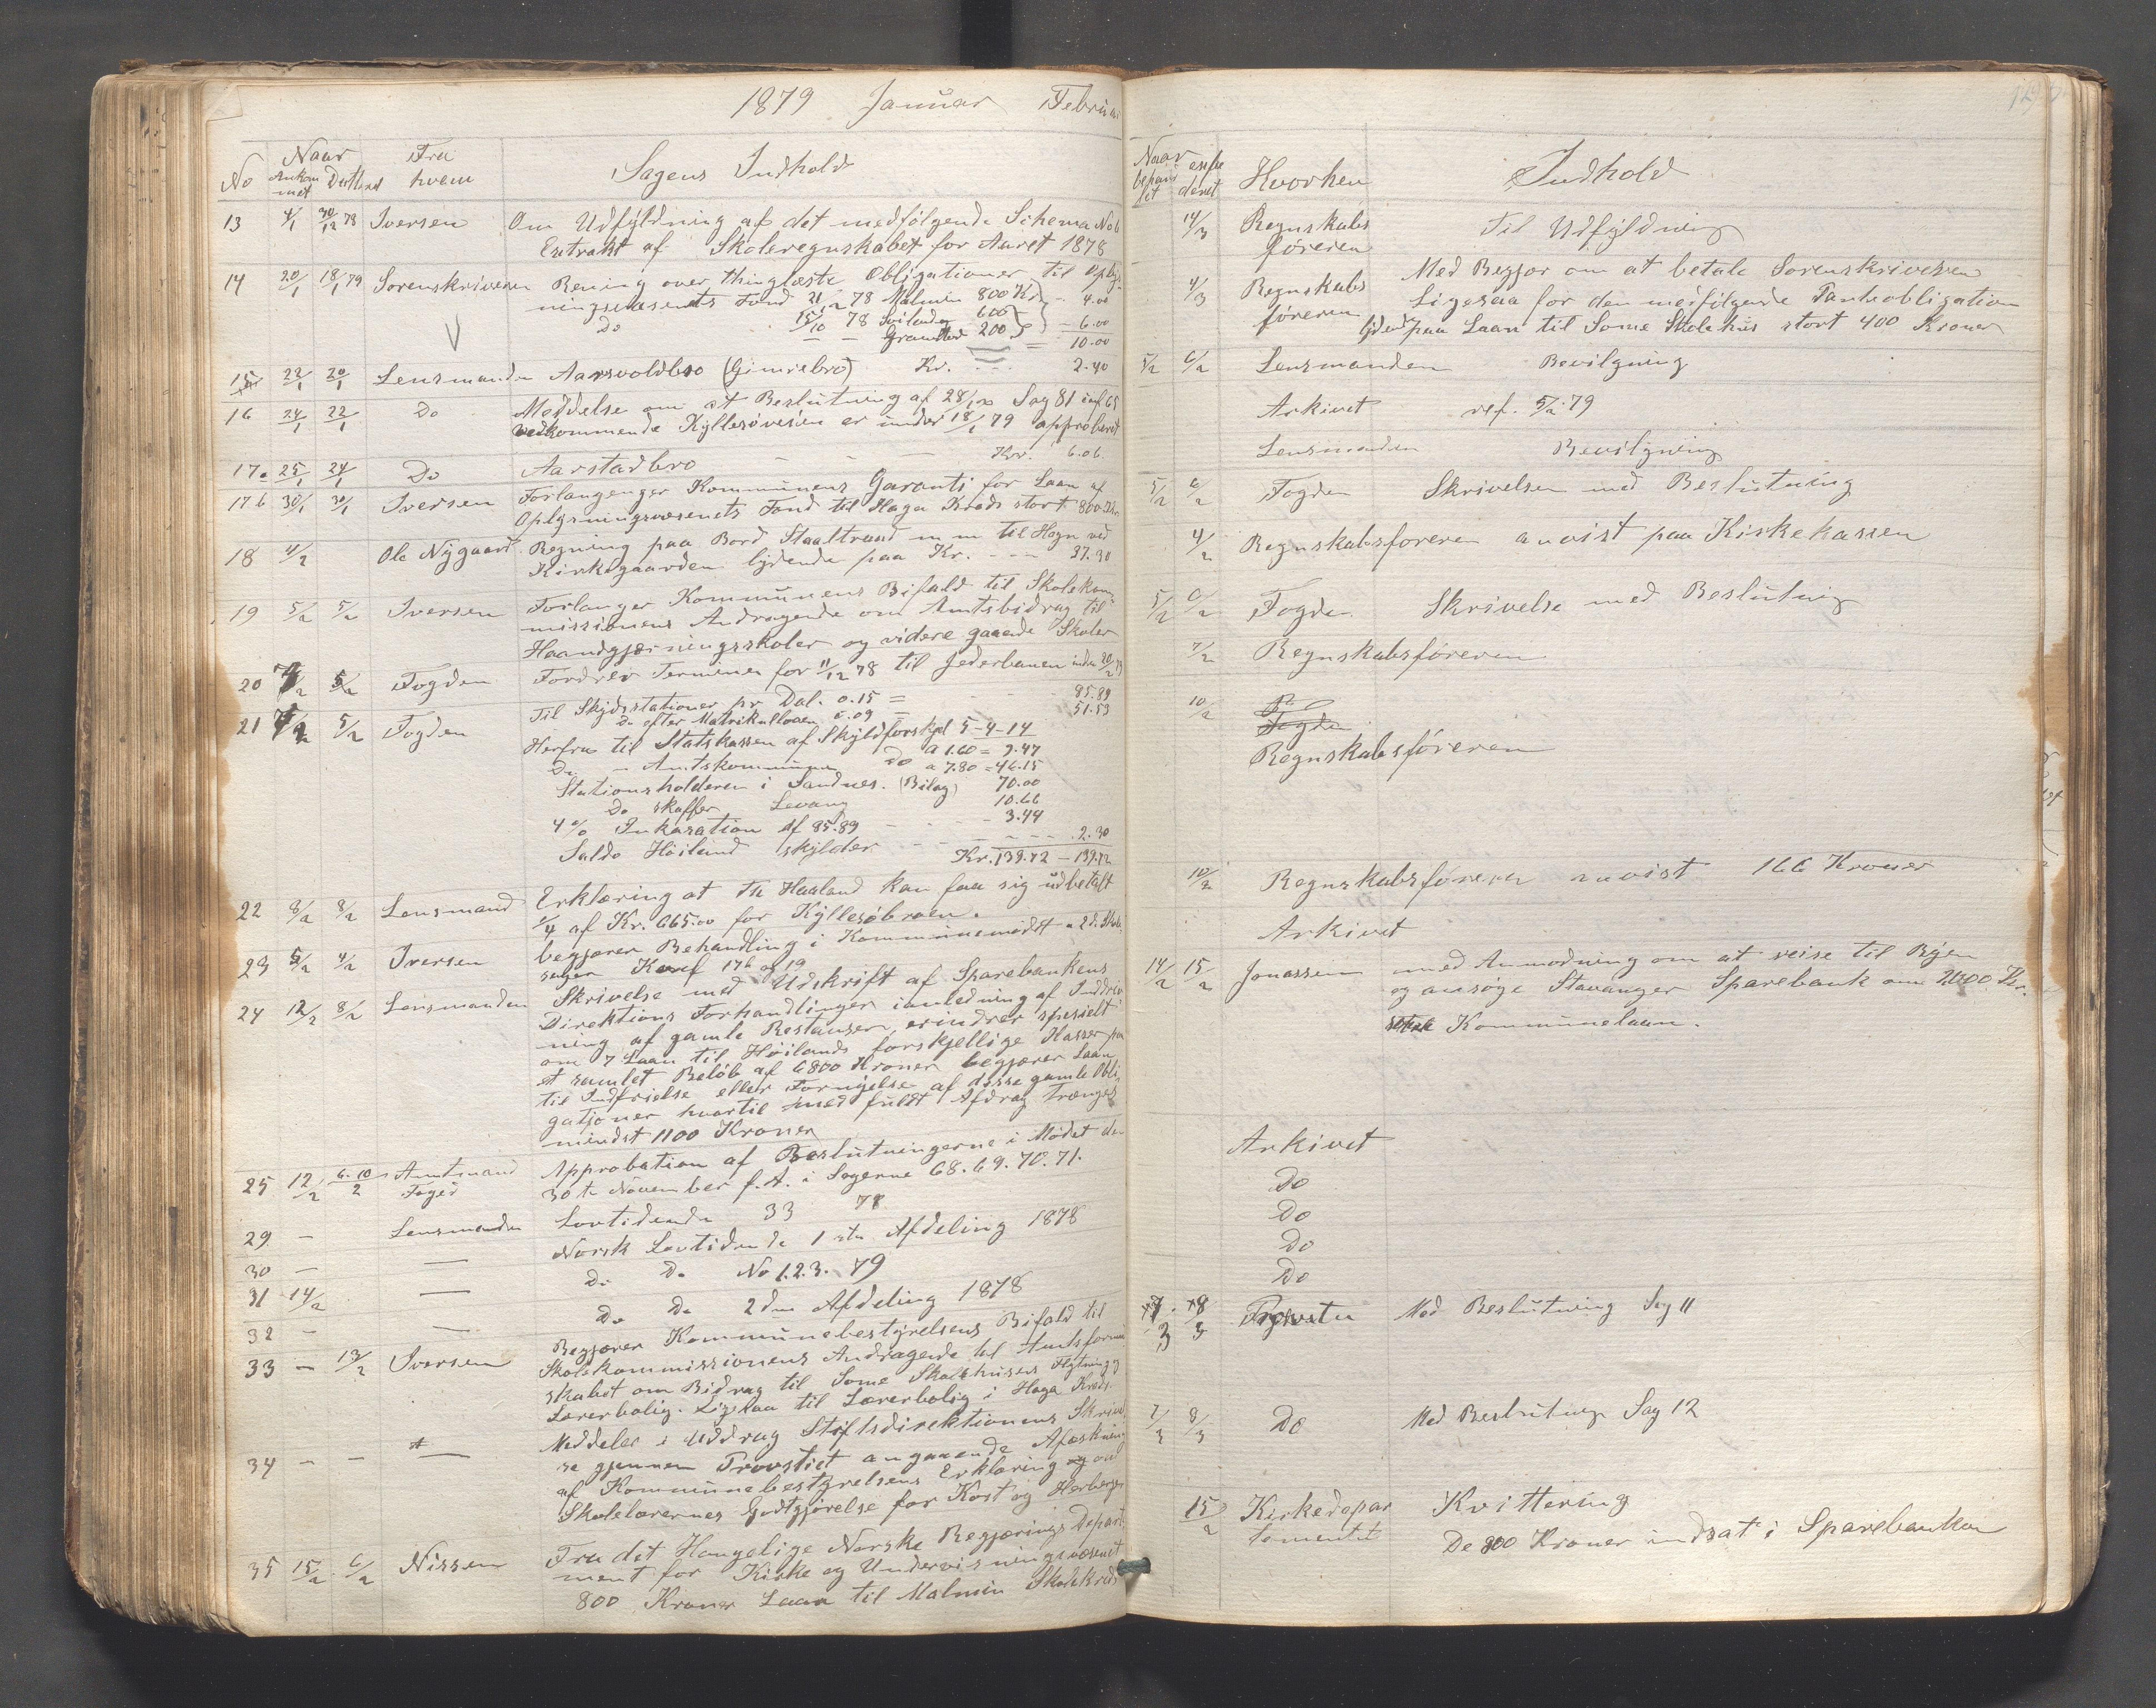 1879 Januar Februar
No Naar Ankommet Dattert Fra hvem Sagens Indhold
13 4/1 30/12 78 Iversen Om Udfyldning af det medfølgende Schema No 6
Extrakt af Skoleregnskabet for Aaret 1878
14 20/1 18/1 79 Sorenskriveren Rening over thinglæste Obligationer til Oplys
ningsvæsenets Fond 21/12 78 Malmin 800 Kr - 4.00
Do 15/10 78 600
- - 200 - 6.00
= 10.00
15 22/1 20/1 Lensmanden Aarsvoldbro (Gimrebro) Kr. 2.40
16 24/1 22/1 Do Meddelse om at Beslutning af Sag 81
vedkommende Kyllesøveien er under 18/1 79 approberet
17a 25/1 24/1 Do Aarstadbro - - - Kr. 6.06
17b 30/1 30/1 Iversen Forlangenger Kommunens Garanti for Laan af
Oplysningsvæsenets Fond til Haga Kreds stort 800 Kr
18 4/2 Ole Nygaard Regning paa Bord Staaltraad m m til Hegn ved
Kirkegaarden lydende paa Kr. - - - 37.30
19 5/2 5/2 Iversen Forlanger Kommunens Bifald til Skolekom
missionens Andragende om Amtsbidrag til
Haandgjerningsskoler og videre gaaende Skoler
20 7/2 5/2 Fogden Fordrer Terminen for 11/12 78 til Jederbanen inden 20/2 79
21 7/2 5/2 Fogden Til Skydsstationer pr Dal. 0.15 = - - - 85.89
Do efter Matrikulloven 0.09 = 51.53
Herfra til Statskassen af Skyldforskjel 5-4-14
a 1.60 = 9.47
Do - Amtskommunen Do a 7.80 = 46.15
Stationsholderen i Sandnes. (Bilag) 70.00
Do skaffer Levang 10.66
4% Inkasation af 85.89 - - - 3.44
Saldo Høiland skylder - - - - 2.30
Kr. 139.72 - 139.72
22 8/2 8/2 Lensmand Erklæring at Th Haaland kan faa sig udbetalt
1/4 af Kr. 665.00 for Kyllesøbroen.
23 5/2 4/2 Iversen begjærer Behandling i Kommunemødet a 2de Skole
sager Konf 17b og 19
24 12/2 8/2 Lensmanden Skrivelse med Udskrift af Sparebankens
Direktions Forhandlinger i anledning af Inddriv
ning af gamle Restanser, erindrer spesielt
om 7 Laan til Høilands forskjellige Kasser paa
et samlet Beløb af 6800 Kroner begjærer Laan
til Indfrielse eller Fornyelse af disse gamle Obli
gationer hvortil med fuldt Afdrag trænges
mindst 1100 Kroner
25 12/2 6.10/2 Amtmand Foged Approbation af Beslutningerne i Mødet den
30te November f.A. i Sagerne 68.69.70.71.
29 - Lensmanden Lovtidende 33 78
30 - - Norsk Lovtidende 1ste Afdeling 1878
31 14/2 - Do Do No 1.2.3. 79
32 - - Do Do 2den Afdeling 1878
33 - 13/2 Iversen Begjærer Kommunebestyrelsens Bifald til
Skolekommissionens Andragende til Amtsformand
skabet om Bidrag til Some Skolehuses Flytning og
Lærerbolig. Ligesaa til Lærerbolig i Haga Kreds
34 - - - Meddeler i Uddrag Stiftsdirektionens Skrivel
se gjennem Provstiet angaaende Afæskning
af Kommunebestyrelsens Erklæring om
Skolelærernes Godtgjørelse for Kost og Herberge
35 15/2 6/2 Nissen Fra det Kongelige Norske Regjærings Depart
ment for Kirke og Undervisningsvæsenet
800 Kroner Laan til Malmin Skolekreds
Naar Hvorhen Indhold
14/3 Regnskabs Til Udfyldning
føreren
4/3 Regnskabs Med Begjær om at betale Sorenskriveren
føreren Ligesaa for den medfølgende Pantobligation
lydende paa Laan til Some Skolehus stort 400 Kroner
5/2 6/2 Lensmanden Bevilgning
Arkivet ref. 5/2 79
Lensmanden Bevilgning
5/2 6/2 Fogden Skrivelsen med Beslutning
4/2 Regnskabsføreren anvist paa Kirkekassen
5/2 6/2 Fogden Skrivelse med Beslutning
7/2 Regnskabsføreren
10/2 Fogden
Regnskabsføreren
10/2 Regnskabsføreren anvist 166 Kroner
Arkivet
14/2 15/2 Jonassen med Anmodning om at reise til Byen
og ansøge Stavanger Sparebank om Kr.
Kommunelaan.
Arkivet
Do
Do
Do
Do
7/3 8/3 Provsten Med Beslutning Sag 11
7/3 8/3 Do Med Beslutning Sag 12
15/2 Kirkedepar Kvittering
tementet De 800 Kroner indsat i Sparebanken